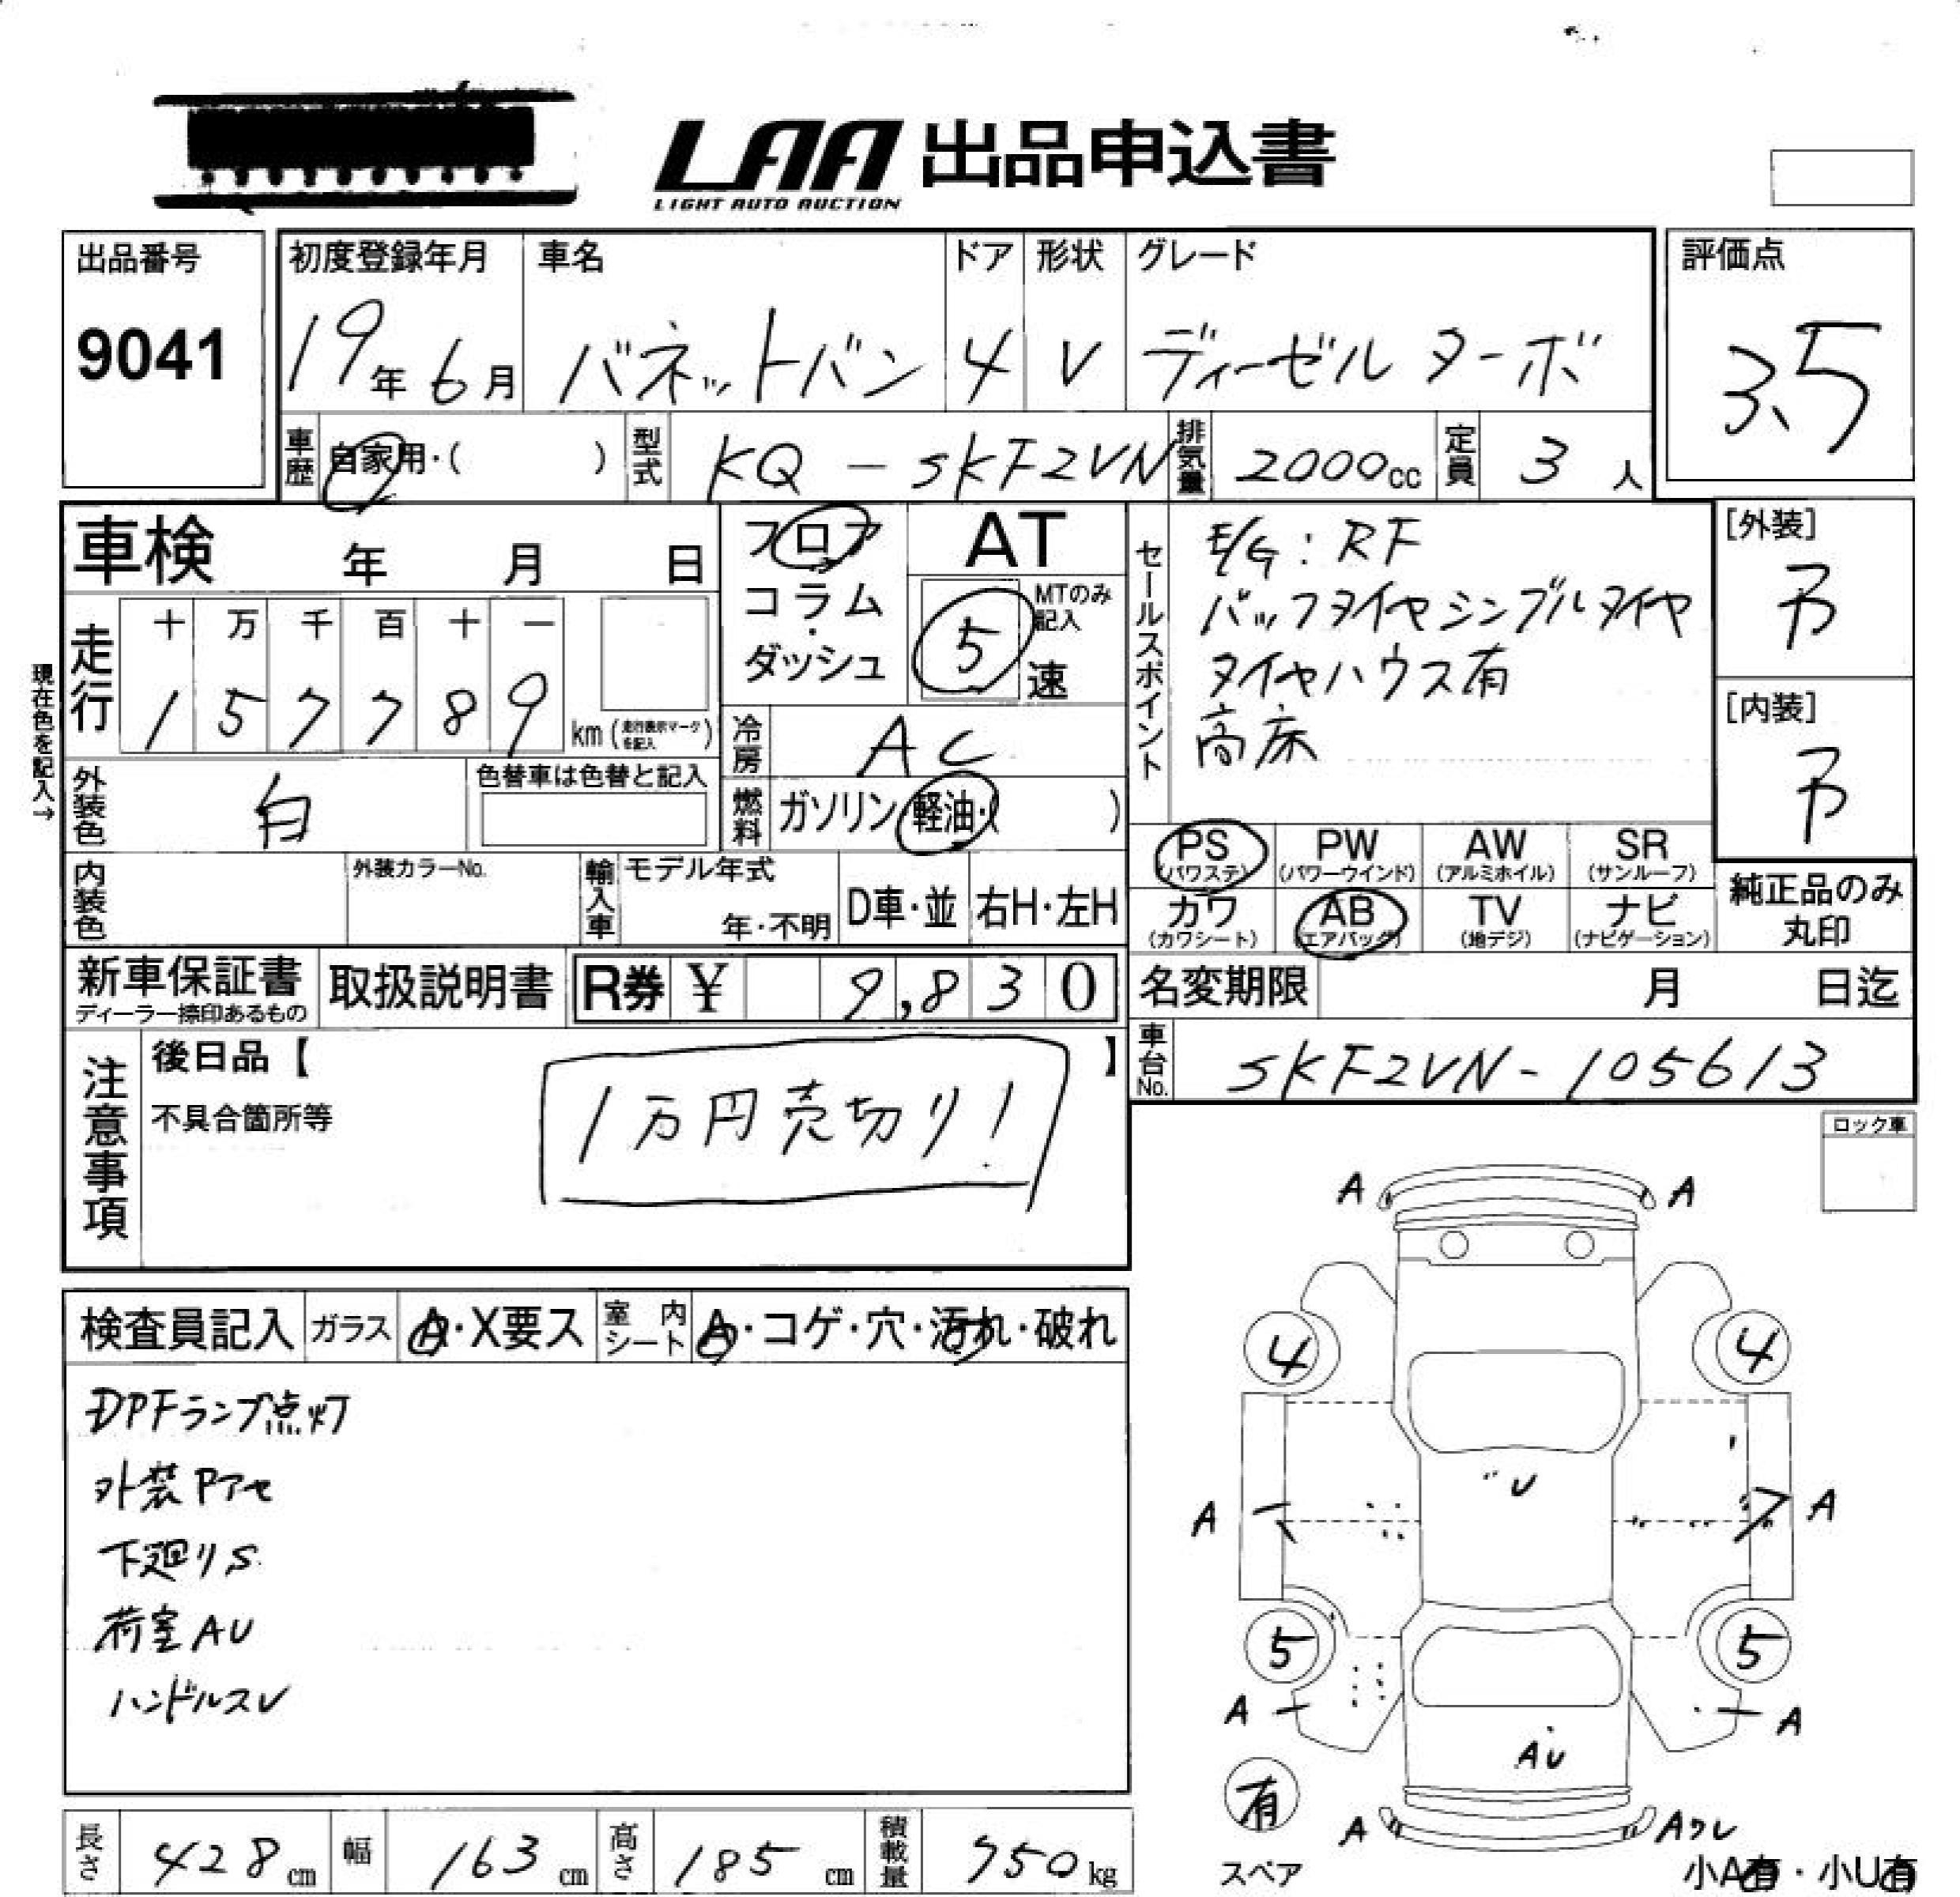 LAA 出品申込書
LIGHT AUTO AUCTION
出品番号
9041
初度登録年月
19年6月
車名
バネットバン
ドア
4
形状
V
グレード
ディーゼル ターボ
評価点
3.5
車歴
自家用・( )
型式
KQ-SKF2VN
排気量
2000cc
定員
3人
車検 年 月 日
フロア
コラム
・
ダッシュ
AT
MTのみ記入
5速
セールスポイント
E/G:RF
バックタイヤシングルタイヤ
タイヤハウス有
高床
[外装]
[内装]
現在色を記入→
走行
十 万 千 百 十 一
1 5 7 7 8 9
km (走行表示マークを記入)
冷房
AC
燃料
ガソリン・軽油・( )
外装色
白
色替車は色替と記入
内装色
外装カラーNo.
輸入車
モデル年式
年・不明
D車・並
右H・左H
PS
(パワステ)
PW
(パワーウインド)
AW
(アルミホイル)
SR
(サンルーフ)
カワ
(カワシート)
AB
(エアバッグ)
TV
(地デジ)
ナビ
(ナビゲーション)
純正品のみ
丸印
新車保証書
ディーラー捺印あるもの
取扱説明書
R券 ¥ 9,830
名変期限 月 日迄
車台No.
SKF2VN-105613
注意事項
後日品【 】
不具合箇所等
1万円売切り!
ロック車
検査員記入
ガラス
A・X要ス
室内シート
A・コゲ・穴・汚れ・破れ
DPFランプ点灯
外装Pアセ
下廻りS
荷室AU
ハンドルスレ
A A
4 4
U
A A
5 5
A A
AU
有
スペア
A Aワレ
小A有・小U有
長さ
428cm
幅
163cm
高さ
185cm
積載量
950kg